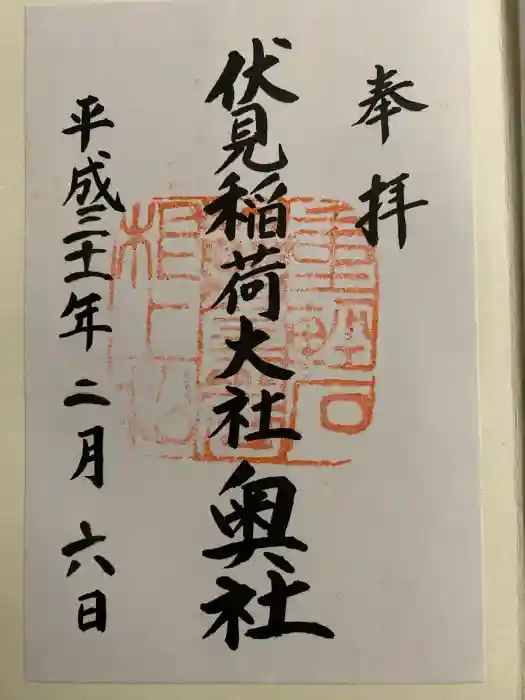 奉拝
伏見稲荷大社 奥社
平成三十一年 二月 六日